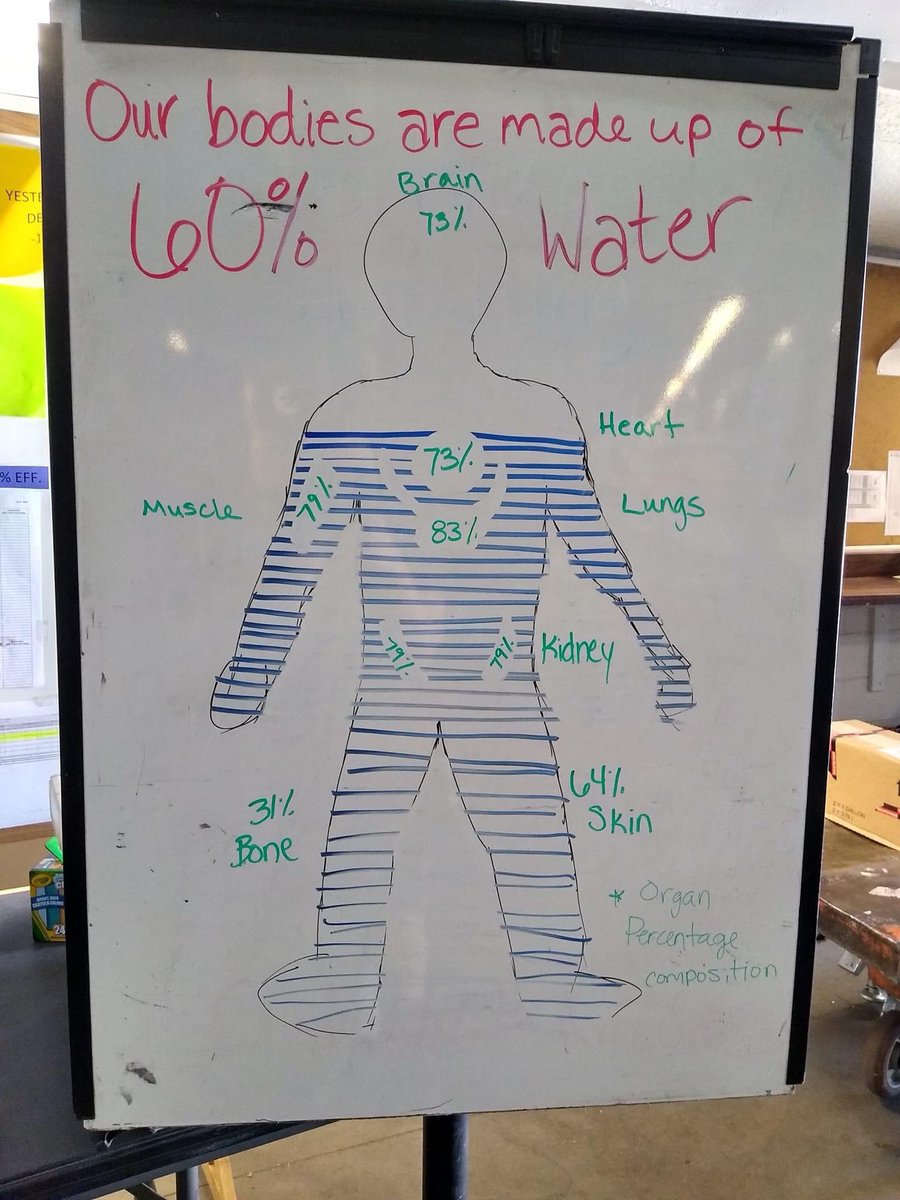 Our bodies are made up of
60% Water
Brain
73%
Heart
73%
79%
Muscle
Lungs
83%
79%
79%
Kidney
64%
Skin
31%
Bone
* Organ
Percentage
composition
YESTE
DE
-1
% EFF.
Crayola
24